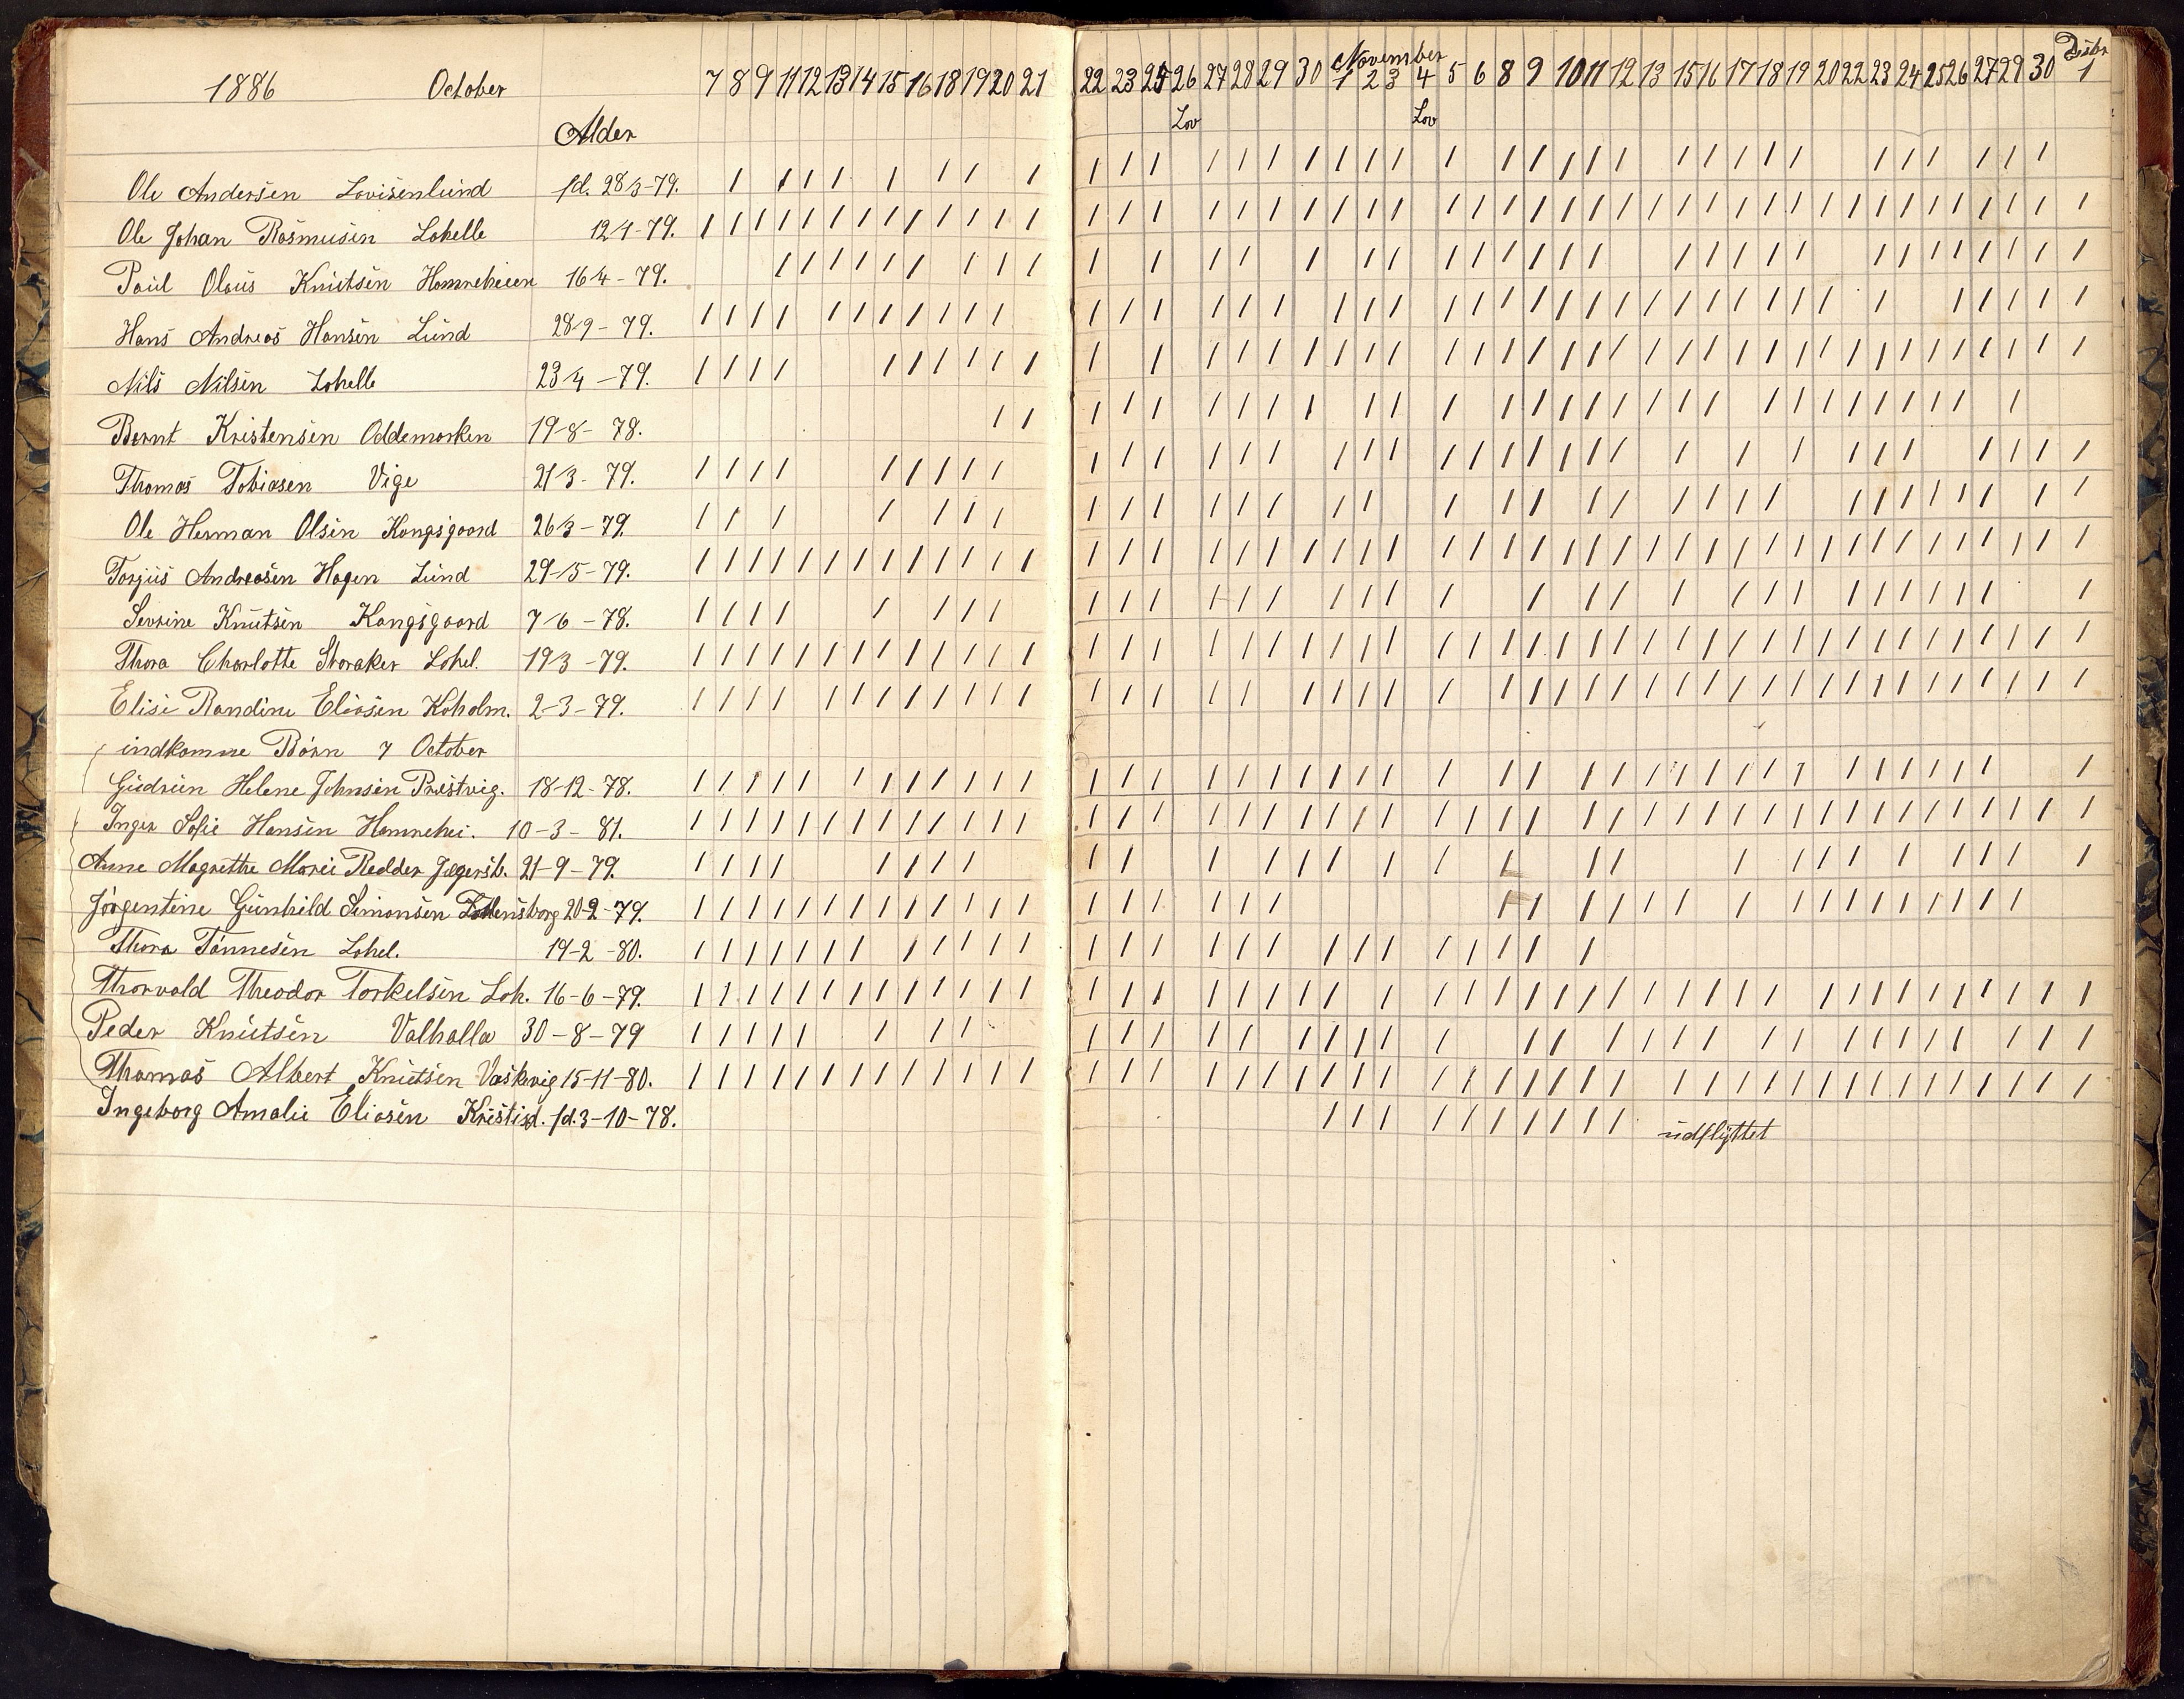 1886 October 7 8 9 11 12 13 14 15 16 18 19 20 21
Alder
Ole Andersen Lovisenlund fd. 28/3-79.
Ole Johan Rasmusen Lohelle 12/4-79.
Paul Olaus Knutsen Hamreheien 16/4-79.
Hans Andreas Hansen Lund 28/9-79.
Nils Nilsen Lohelle 23/4-79.
Bernt Kristensen Oddemarken 19-8-78.
Thomas Tobiasen Vige 21/3-79.
Ole Herman Olsen Kongsgaard 26/3-79.
Torjus Andreasen Hagen Lund 29-5-79.
Sevrine Knutsen Kongsgaard 7-6-78.
Thora Charlotte Storaker Lohel. 19/3-79.
Elise Randine Eliasen Koholm. 2-3-79.
indkomne Børn 7 October
Gudrun Helene Johnsen Prestvig. 18-12-78.
Inger Sofie Hansen Hamrehei. 10-3-81.
Anne Magrethe Marie Redder Jægersb. 21-9-79.
Jörgentine Gunhild Simonsen 20-2-79.
Thora Tönnesen Lohel. 14-2-80.
Thorvald Theodor Torkelsen Loh. 16-6-79.
Peder Knutsen Valhalla 30-8-79
Thomas Albert Knutsen Vaskevig 15-11-80.
Ingeborg Amalie Eliasen fd. 3-10-78.
November Desbr
22 23 25 26 27 28 29 30 1 2 3 4 5 6 8 9 10 11 12 13 15 16 17 18 19 20 22 23 24 25 26 27 29 30 1
Lov Lov
udflyttet